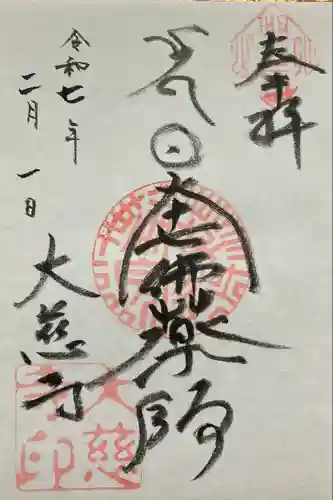 奉拝
七佛薬師
令和七年
二月一日
大慈寺
大慈
寺印